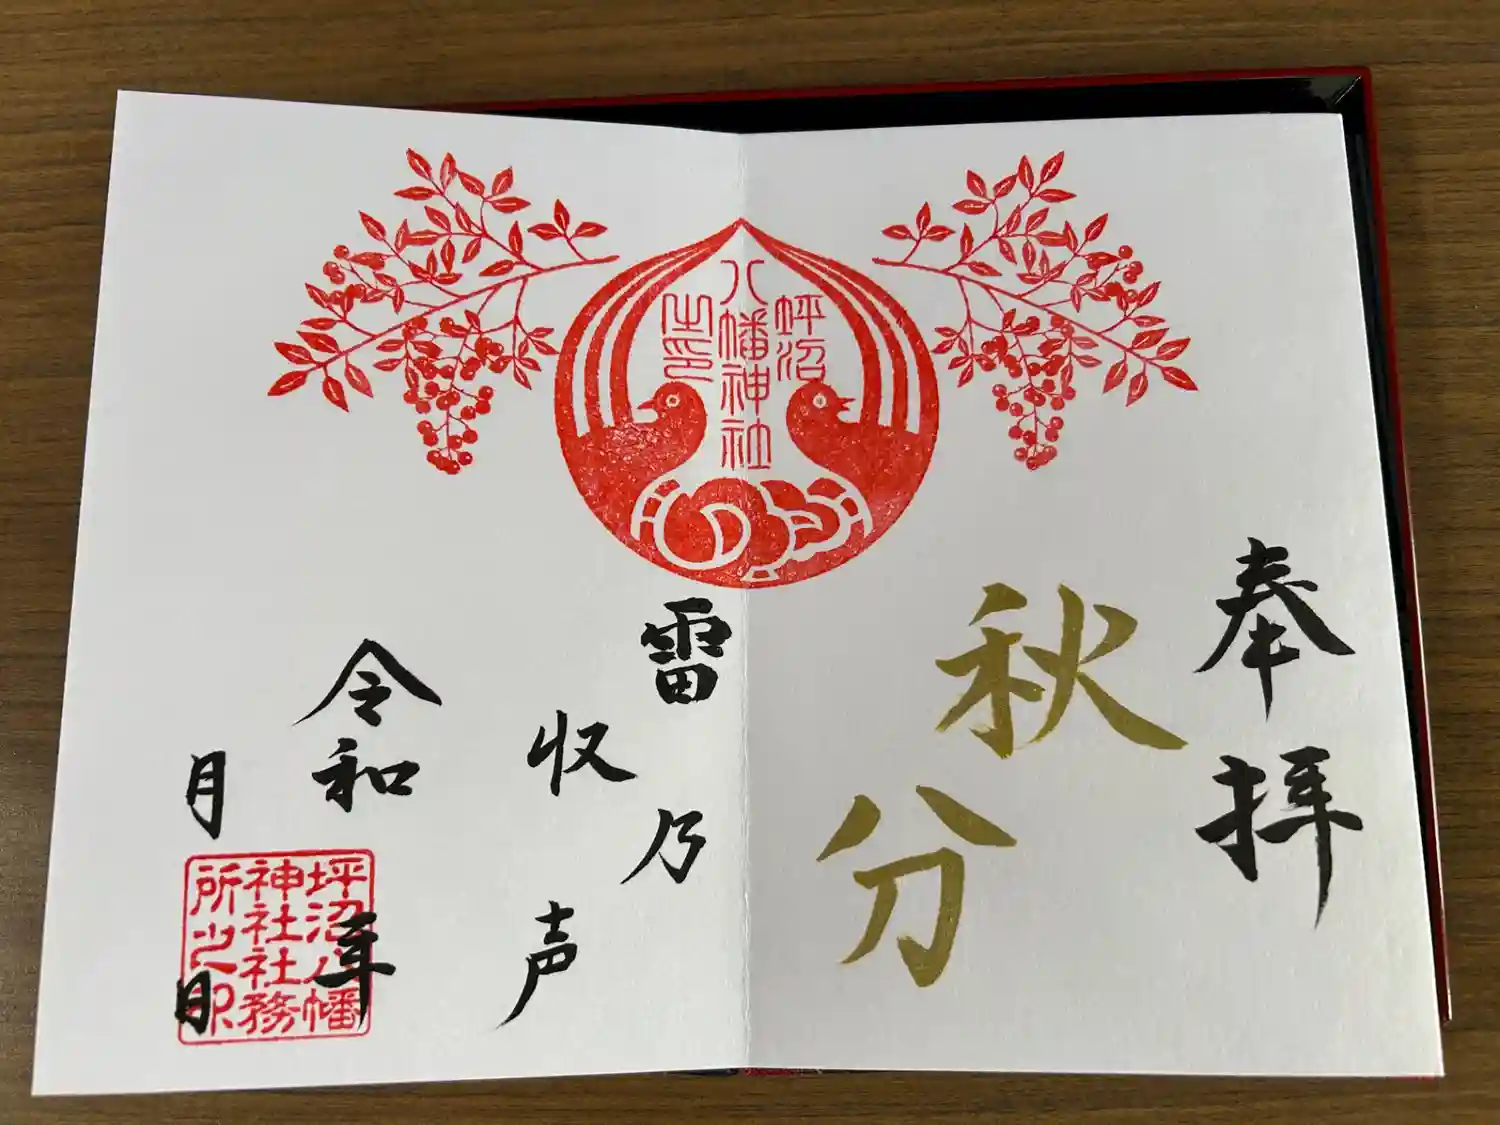 奉拝
秋分
雷乃
収声
令和 年
月 日
坪沼
八幡神社
之印
坪沼八幡
神社社務
所之印